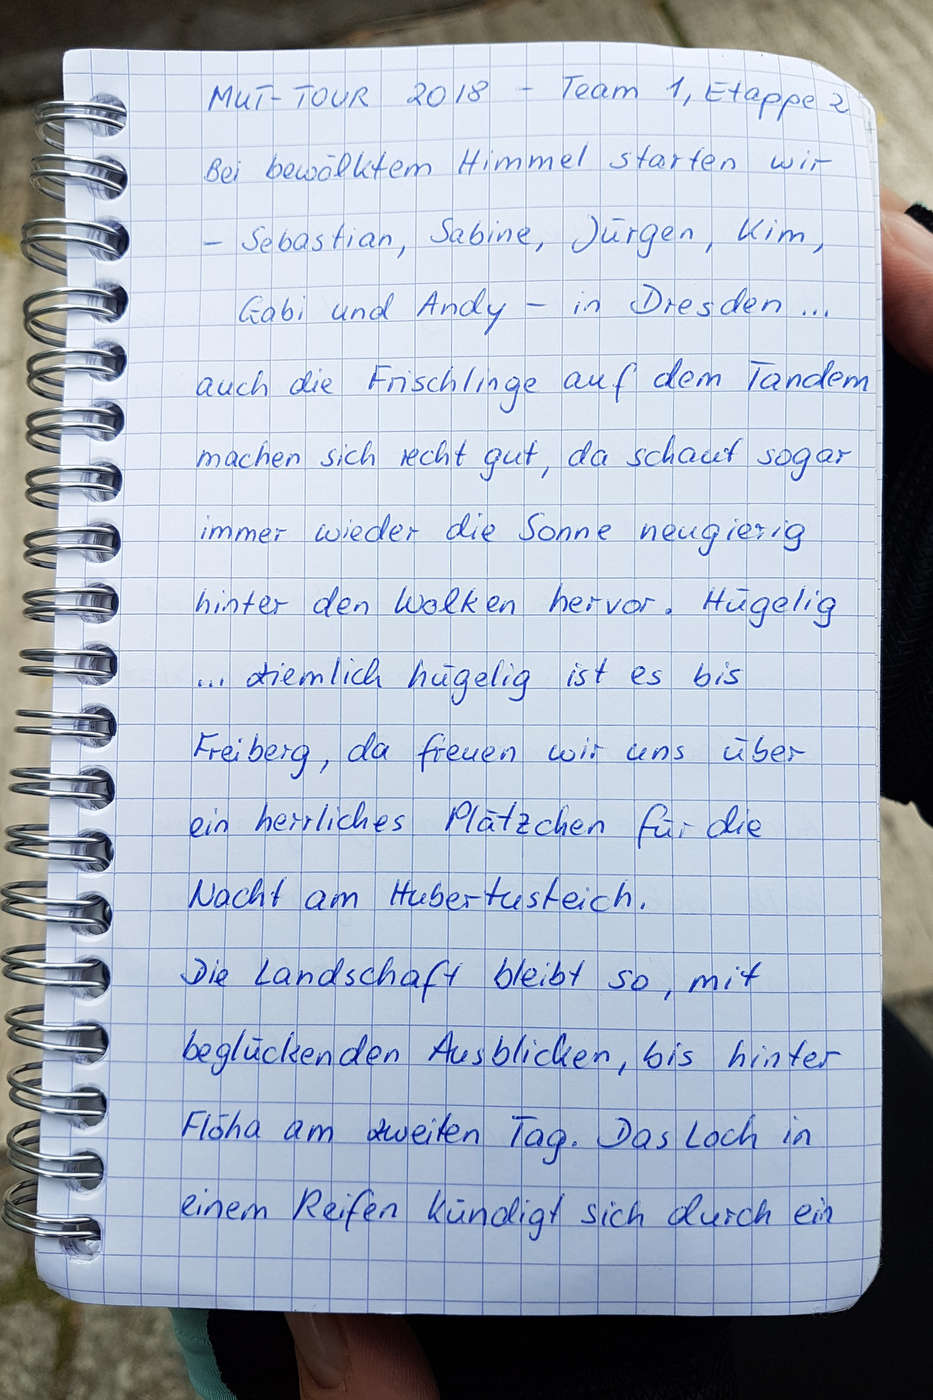 MUT-TOUR 2018 - Team 1, Etappe 2
Bei bewölktem Himmel starten wir
- Sebastian, Sabine, Jürgen, Kim,
Gabi und Andy - in Dresden ...
auch die Frischlinge auf dem Tandem
machen sich recht gut, da schaut sogar
immer wieder die Sonne neugierig
hinter den Wolken hervor. Hügelig
... ziemlich hügelig ist es bis
Freiberg, da freuen wir uns über
ein herrliches Plätzchen für die
Nacht am Hubertusteich.
Die Landschaft bleibt so, mit
beglückenden Ausblicken, bis hinter
Flöha am zweiten Tag. Das Loch in
einem Reifen kündigt sich durch ein